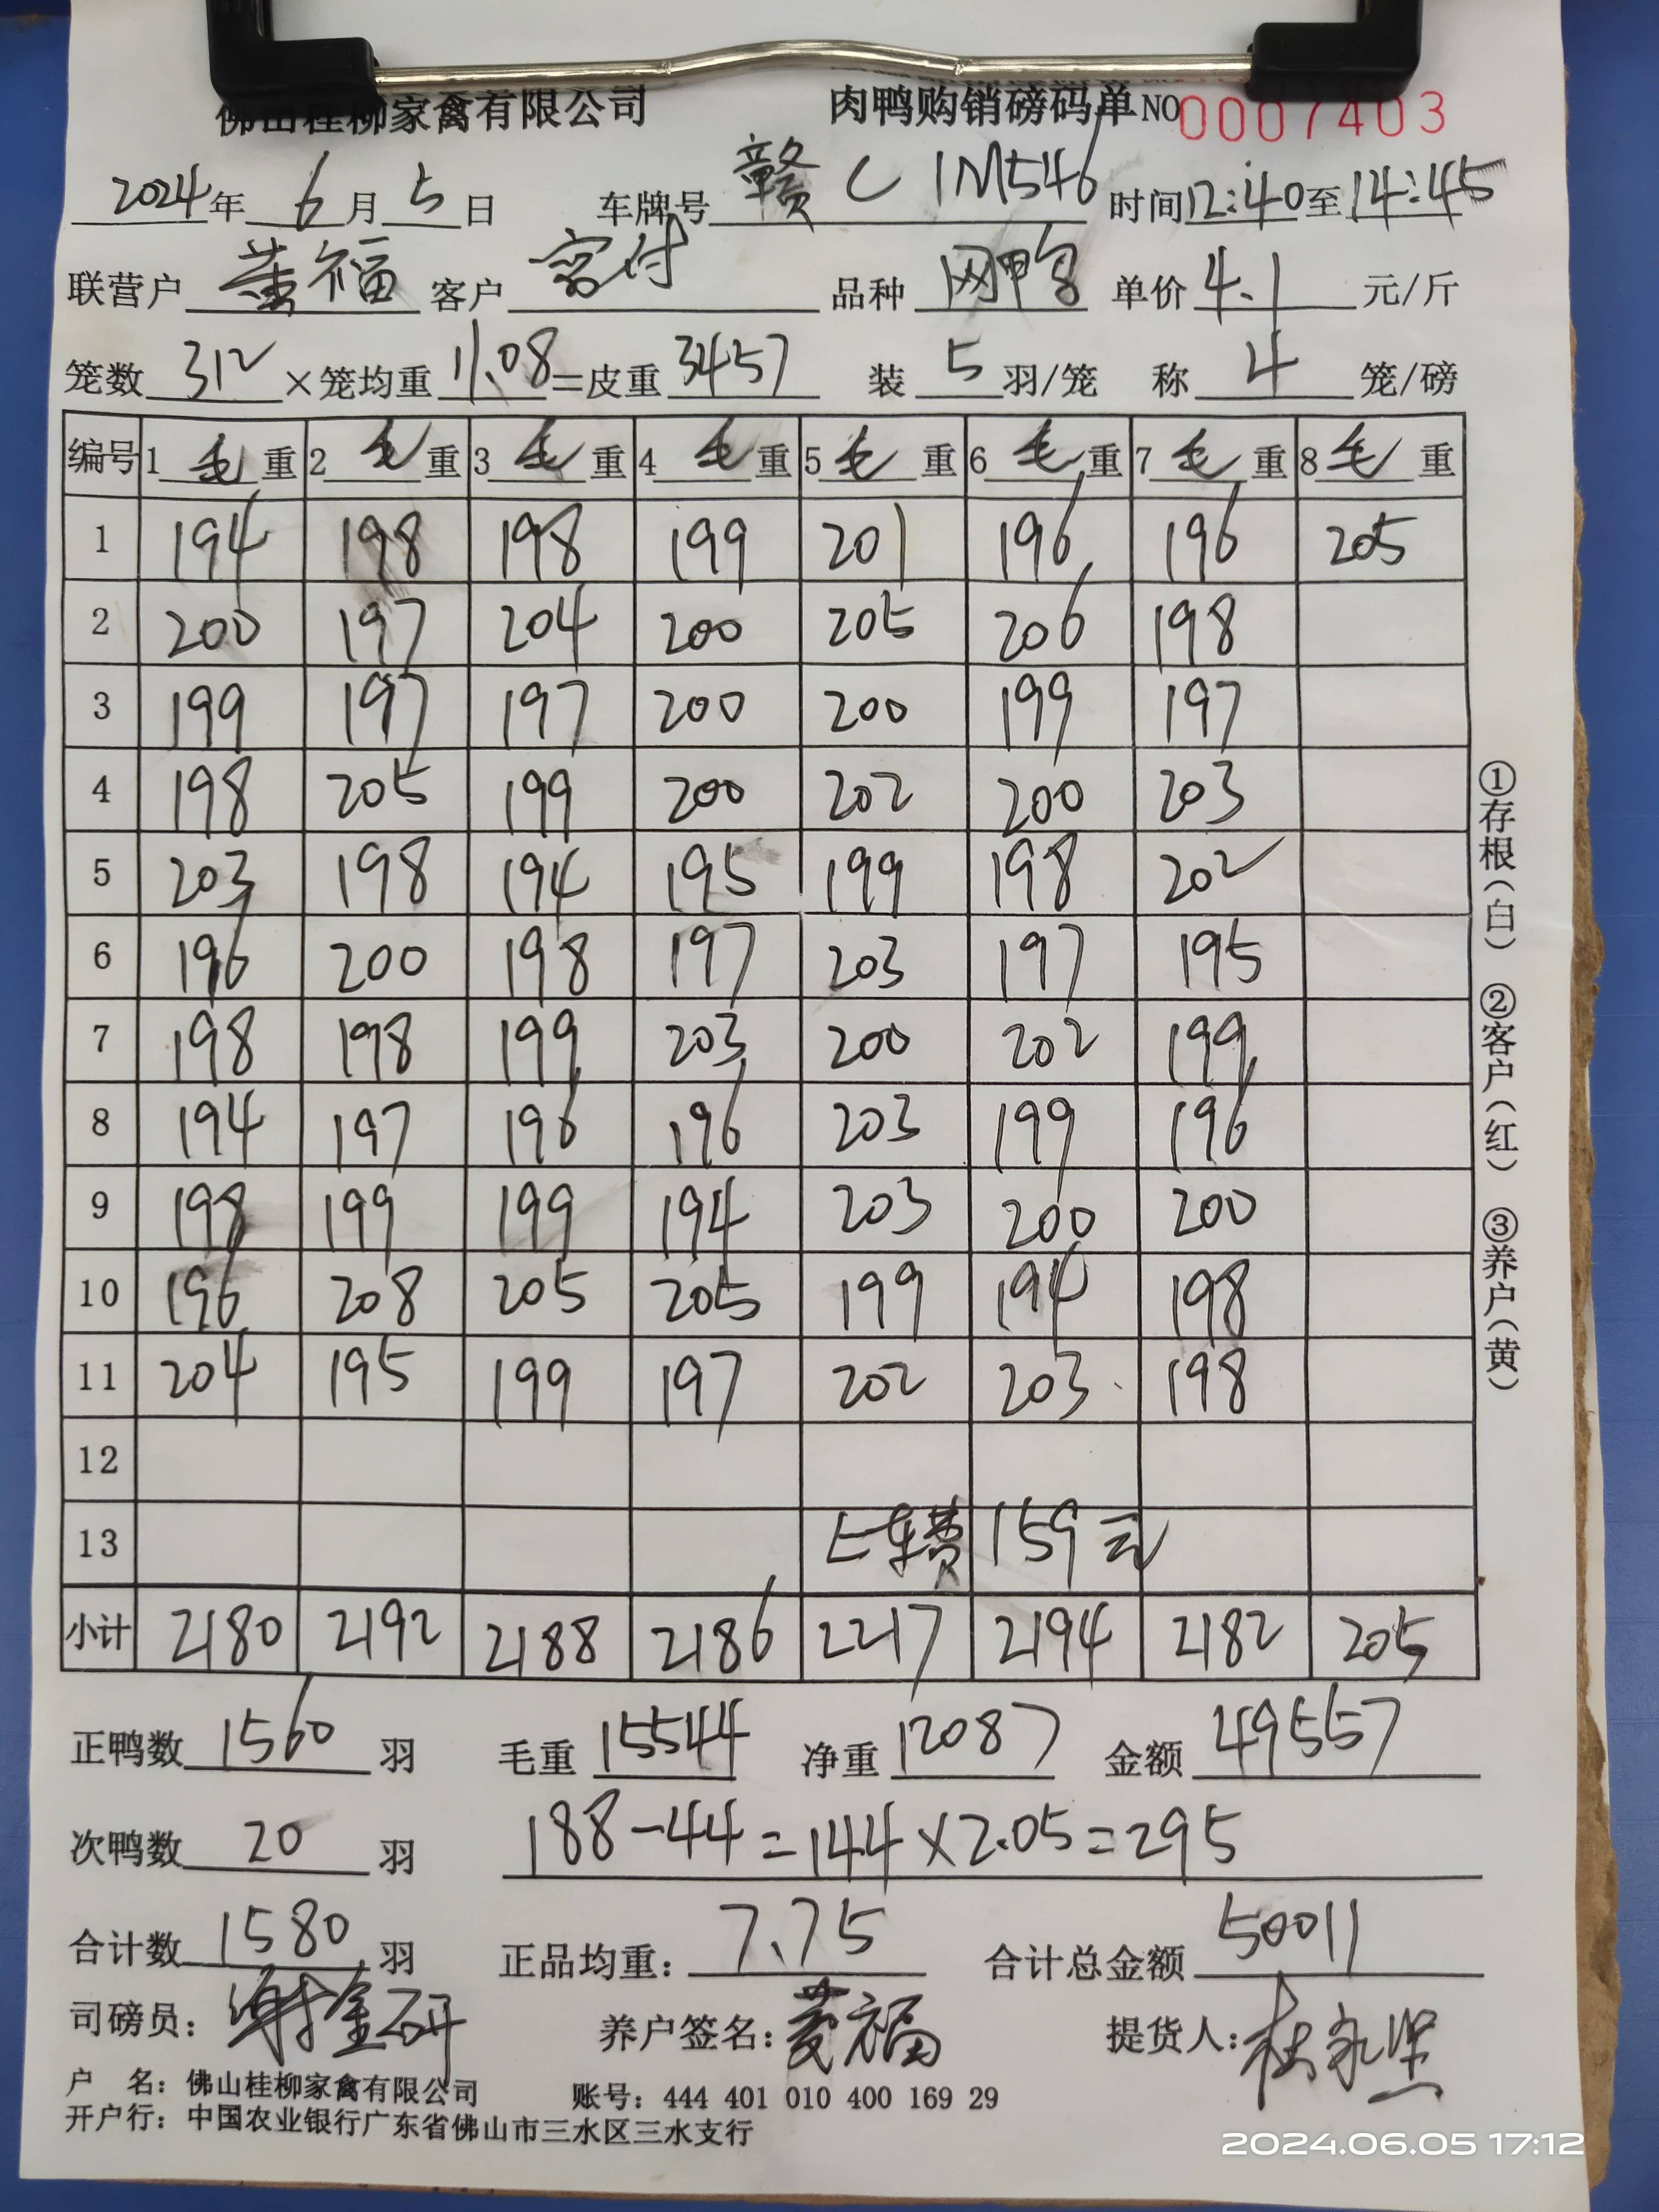 佛山桂柳家禽有限公司 肉鸭购销磅码单 NO 0007403
2024年 6月 5日 车牌号 赣C 1M546 时间 12:40 至 14:45
联营户 黄福 客户 客付 品种 网鸭 单价 4.1 元/斤
笼数 312 ×笼均重 11.08 =皮重 3457 装 5 羽/笼 称 4 笼/磅
编号 1 毛 重 2 毛 重 3 毛 重 4 毛 重 5 毛 重 6 毛 重 7 毛 重 8 毛 重
1 194 198 198 199 201 196 196 205
2 200 197 204 200 205 206 198
3 199 197 197 200 200 199 197
4 198 205 199 200 202 200 203
5 203 198 194 195 199 198 202
6 196 200 198 197 203 197 195
7 198 198 199 203 200 202 199
8 194 197 196 196 203 199 196
9 198 199 199 194 203 200 200
10 196 208 205 205 199 194 198
11 204 195 199 197 202 203 198
12
13 上车费 159元
小计 2180 2192 2188 2186 2217 2194 2182 205
正鸭数 1560 羽 毛重 15544 净重 12087 金额 49557
次鸭数 20 羽 188-44=144×2.05=295
合计数 1580 羽 正品均重: 7.75 合计总金额 50011
司磅员: 谢金研 养户签名: 黄福 提货人: 杜
户 名: 佛山桂柳家禽有限公司 账号: 444 401 010 400 169 29
开户行: 中国农业银行广东省佛山市三水区三水支行
①存根(白) ②客户(红) ③养户(黄)
2024.06.05 17:12